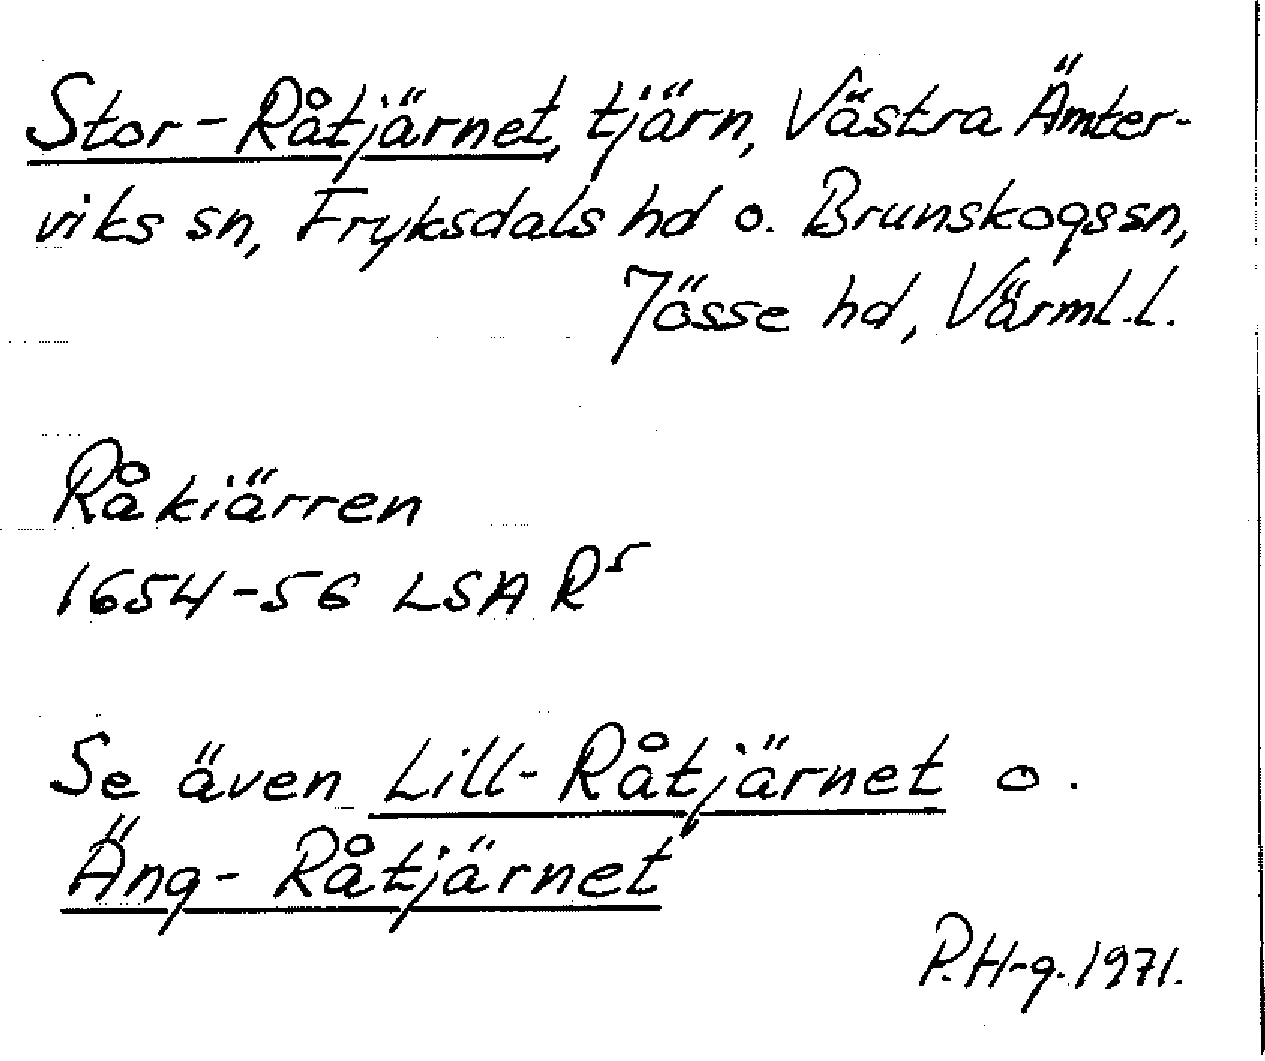 Stor-Råtjärnet, tjärn, Västra Ämter-
viks sn, Fryksdals hd o. Brunskogs sn,
Jösse hd, Värml.l.
Råkiärren
1654-56 LSA R⁵
Se även Lill-Råtjärnet o.
Äng-Råtjärnet
P.H-g. 1971.